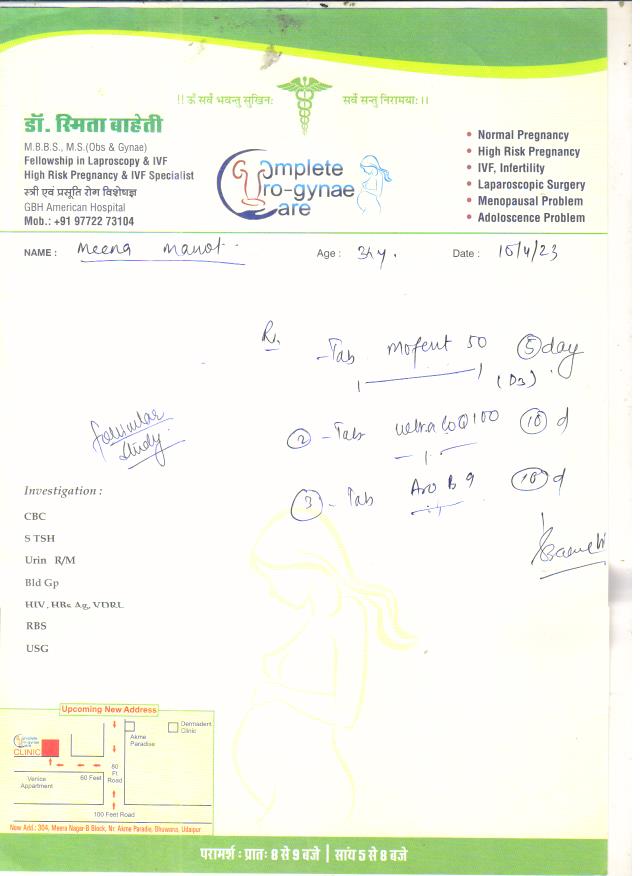 !! ॐ सर्वे भवन्तु सुखिनः सर्वे सन्तु निरामयाः ।।
डॉ. स्मिता बाहेती
M.B.B.S., M.S.(Obs & Gynae)
Fellowship in Laproscopy & IVF
High Risk Pregnancy & IVF Specialist
स्त्री एवं प्रसूति रोग विशेषज्ञ
GBH American Hospital
Mob.: +91 97722 73104
Complete
Uro-gynae
Care
• Normal Pregnancy
• High Risk Pregnancy
• IVF, Infertility
• Laparoscopic Surgery
• Menopausal Problem
• Adoloscence Problem
NAME : Meena Age : 34 y. Date : 15/4/23
R.
- Tab 50 5 day
(D3)
2 - Tab 100 10 d
3 - Tab 10 d
follicular
study
Investigation :
CBC
S TSH
Urin R/M
Bld Gp
HIV, HBs Ag, VDRL
RBS
USG
Upcoming New Address
Complete
Uro-gynae
Care
CLINIC
Akme
Paradise
Dermadent
Clinic
Venice
Appartment
60 Feet
80
Ft.
Road
100 Feet Road
New Add.: 304, Meera Nagar-B Block, Nr. Akme Paradie, Bhuwana, Udaipur
परामर्श : प्रातः 8 से 9 बजे | सांय 5 से 8 बजे